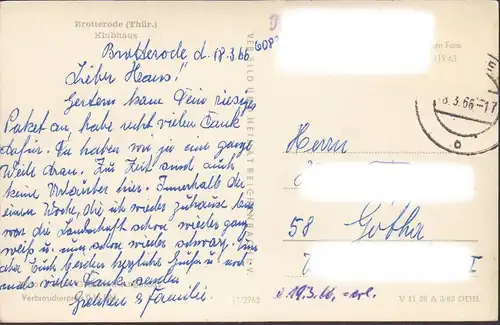 Brotterode (Thür.)
Klubhaus
Brotterode d. 18.3.66
Lieber Hans!
Gestern kam Dein riesiges
Paket an, habe recht vielen Dank
dafür. Da haben wir ja eine ganze
Weile dran. Zur Zeit sind auch
keine Urlauber hier. Innerhalb der
einen Woche, die ich wieder zuhause bin
war die Landschaft schon wieder ganz
weiß u. nun schon wieder schwarz. Nun
Euch beiden herzliche Grüße u. noch
mals vielen Dank senden
Gretchen & Familie.
Verbraucherpreis
I 12763
VERBILD UND HEIMAT REICHENBACH
Foto
Herrn
58 Gotha
19.3.66. erl.
V 11 28 A 3/63 DDR
3.66-17